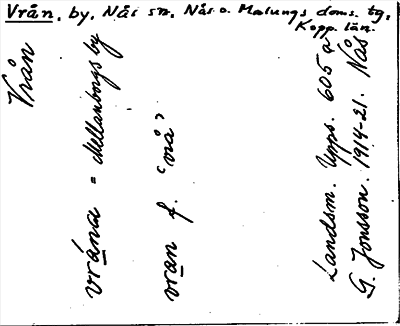 Vrån. by. Nås sn. Nås o. Malungs doms. tg.
Kopp. län.
Vrån
vrána = Mellanborgs by
vran f. "vrå"
Landsm. Upps. 605 a
G. Jonsson. 1914-21. Nås